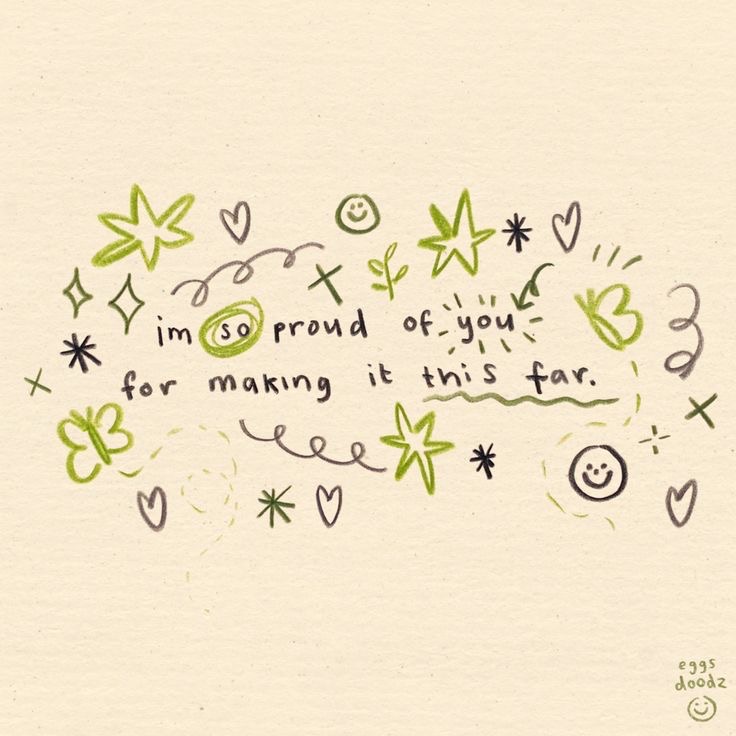 im so proud of you
for making it this far.
eggs
doodz